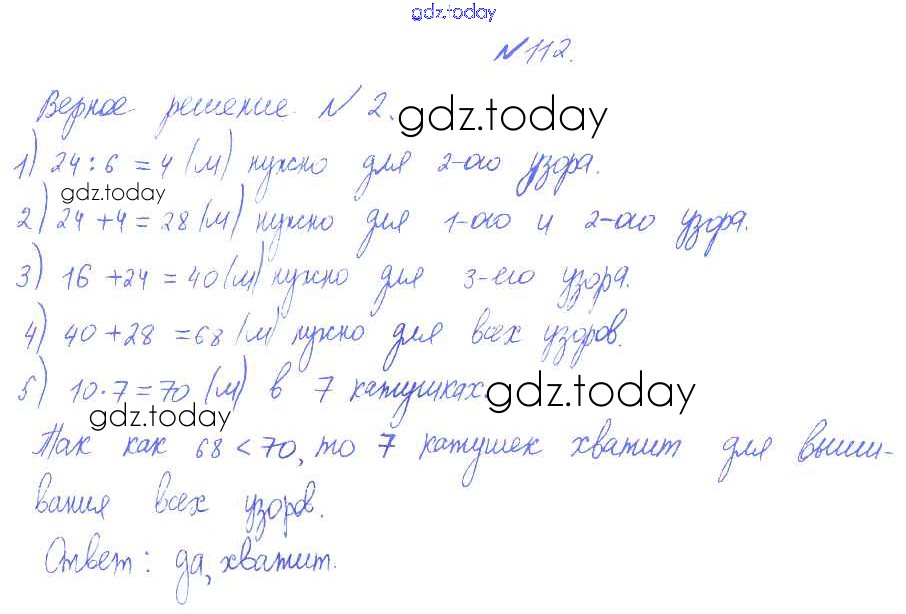 gdz.today
№ 112.
Верное решение № 2. gdz.today
1) 24 : 6 = 4 (м) нужно для 2-ого узора.
gdz.today
2) 24 + 4 = 28 (м) нужно для 1-ого и 2-ого узора.
3) 16 + 24 = 40 (м) нужно для 3-его узора.
4) 40 + 28 = 68 (м) нужно для всех узоров.
5) 10 · 7 = 70 (м) в 7 катушках. gdz.today
gdz.today
Так как 68 < 70, то 7 катушек хватит для выши-
вания всех узоров.
Ответ: да, хватит.